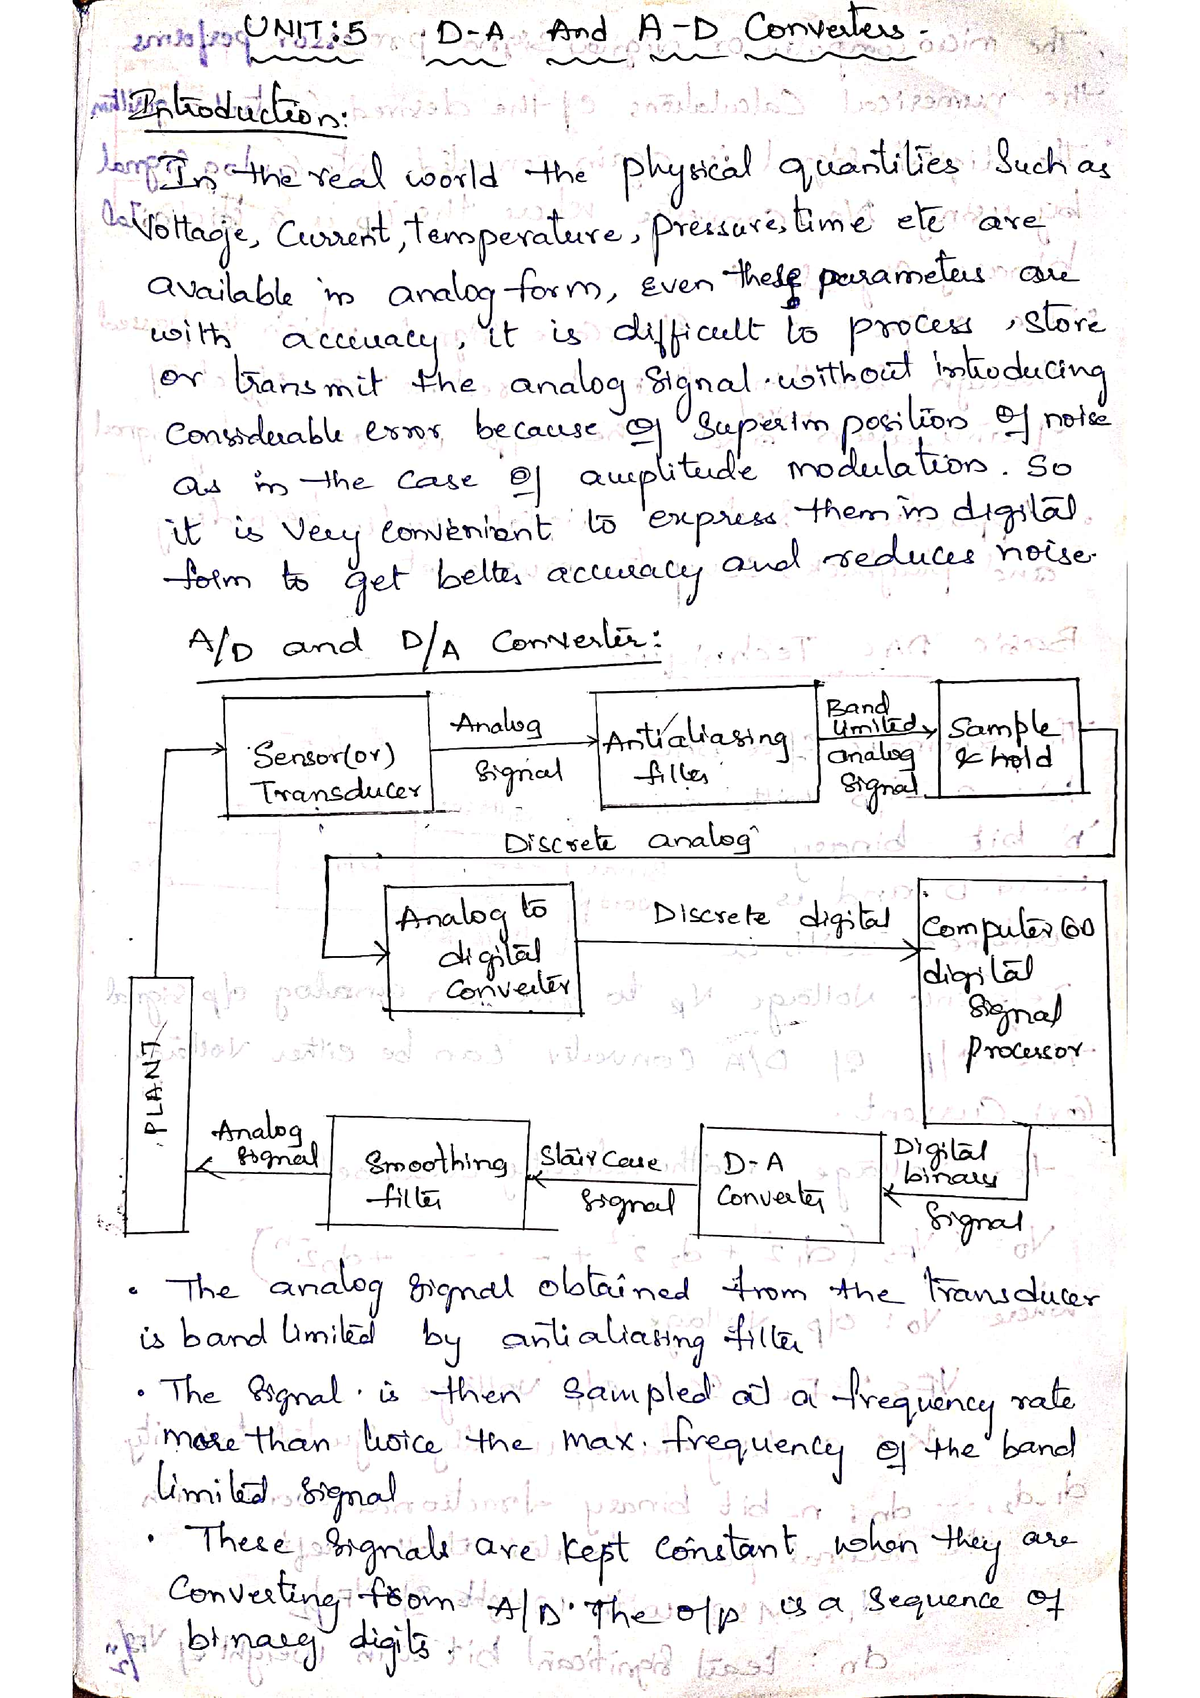 UNIT:5 D-A And A-D Converters.
Introduction:
In the real world the physical quantities Such as
Voltage, Current, temperature, pressure, time etc are
available in analog form, Even these parameters are
with accuracy, it is difficult to process, store
or transmit the analog Signal without introducing
Considerable error because of Superim position of noise
as in the case of amplitude modulation. So
it is Very convenient to express them in digital
form to get better accuracy and reduces noise.
A/D and D/A Converter:
Sensor(or)
Transducer
Analog
Signal
Antialiasing
filter
Band
limited
analog
Signal
Sample
& hold
Discrete analog
Analog to
digital
Converter
Discrete digital
Computer (or)
digital
Signal
Processor.
PLANT
Analog
Signal
Smoothing
filter
Stair Case
Signal
D-A
Converter
Digital
binary
Signal
• The analog Signal obtained from the transducer
is band limited by antialiasing filter
• The Signal is then Sampled at a frequency rate
more than twice the max. frequency of the band
limited Signal
• These Signals are kept Constant when they are
Converting from A/D. The o/p is a Sequence of
binary digits.